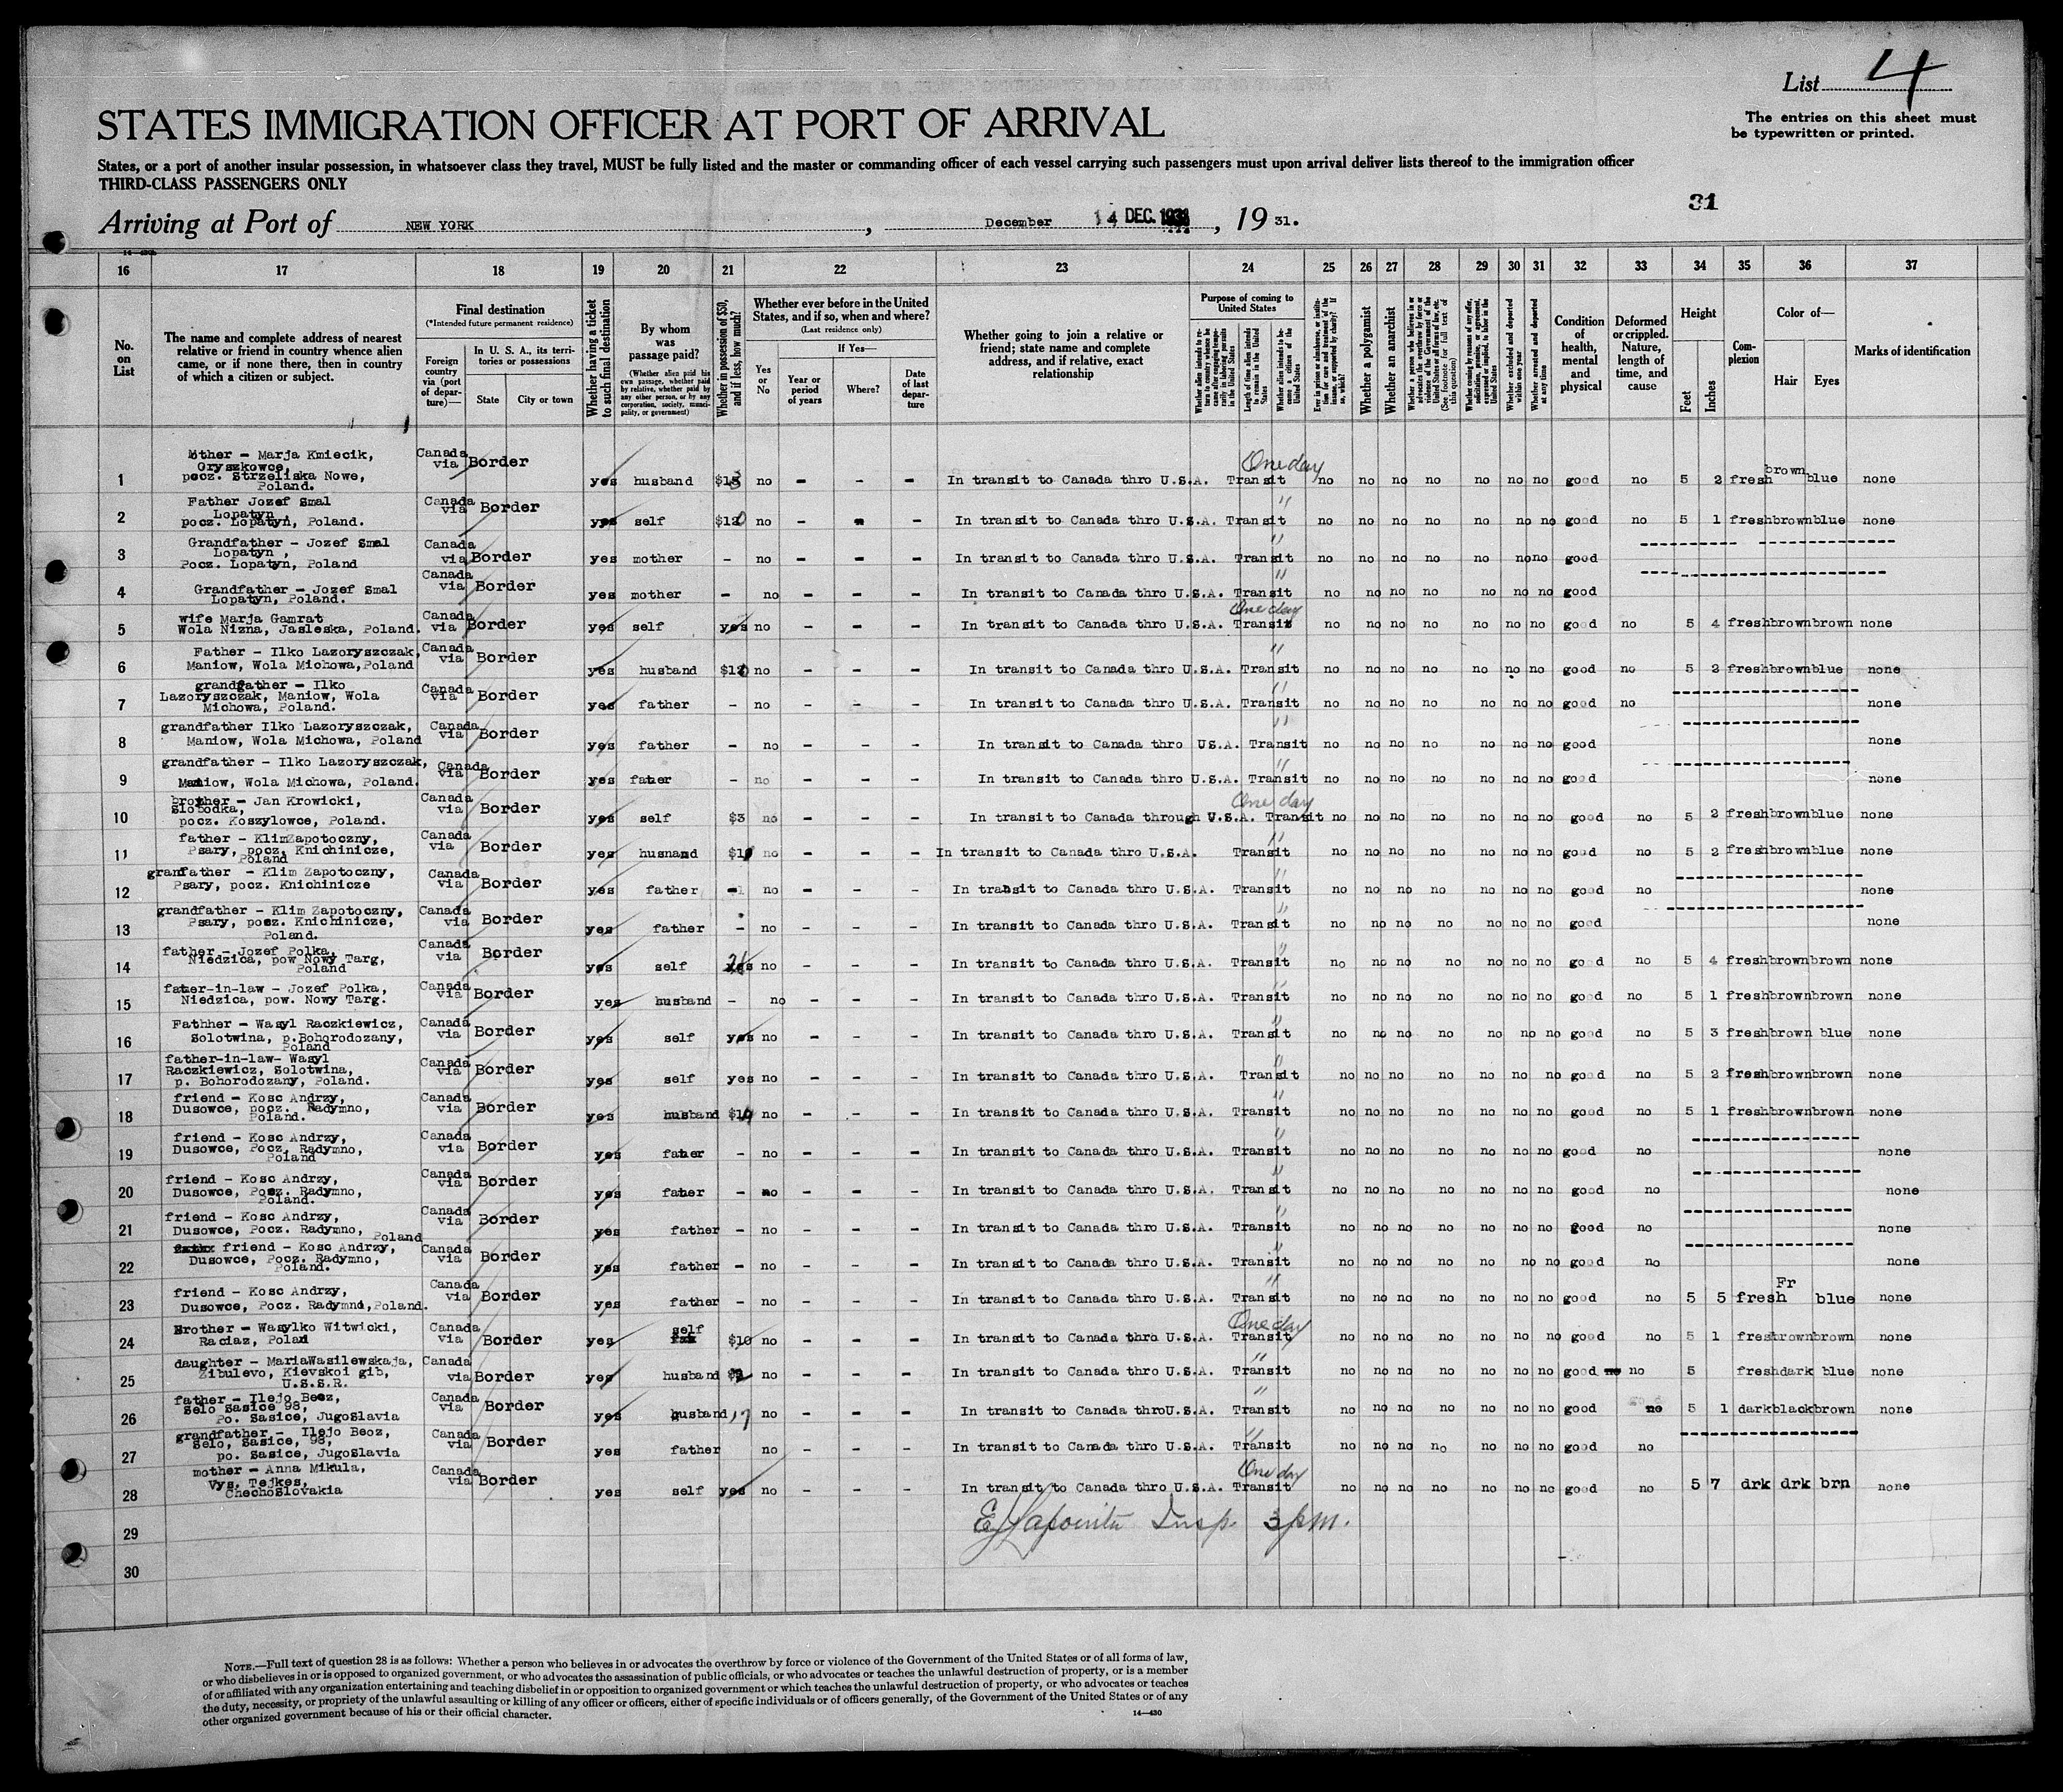 List 4
The entries on this sheet must
be typewritten or printed.
STATES IMMIGRATION OFFICER AT PORT OF ARRIVAL
States, or a port of another insular possession, in whatsoever class they travel, MUST be fully listed and the master or commanding officer of each vessel carrying such passengers must upon arrival deliver lists thereof to the immigration officer
THIRD-CLASS PASSENGERS ONLY
31
Arriving at Port of NEW YORK, December 14 DEC. 1931, 19 31.
16 17 18 19 20 21 22 23 24 25 26 27 28 29 30 31 32 33 34 35 36 37
No. on List
The name and complete address of nearest relative or friend in country whence alien came, or if none there, then in country of which a citizen or subject.
Final destination
(*Intended future permanent residence)
Foreign country via (port of departure)—
In U. S. A., its territories or possessions
State
City or town
Whether having a ticket to such final destination
By whom was passage paid?
(Whether alien paid his own passage, whether paid by relative, whether paid by any other person, or by any corporation, society, municipality, or government)
Whether in possession of $50, and if less, how much?
Whether ever before in the United States, and if so, when and where?
(Last residence only)
Yes or No
If Yes—
Year or period of years
Where?
Date of last departure
Whether going to join a relative or friend; state name and complete address, and if relative, exact relationship
Purpose of coming to United States
Whether alien intends to return to country whence he came after engaging temporarily in laboring pursuits in the United States
Length of time alien intends to remain in the United States
Whether alien intends to become a citizen of the United States
Ever in prison or almshouse, or institution for care and treatment of the insane, or supported by charity? If so, which?
Whether a polygamist
Whether an anarchist
Whether a person who believes in or advocates the overthrow by force or violence of the Government of the United States or all forms of law, etc. (See footnote for full text of this question)
Whether coming by reason of any offer, solicitation, promise, or agreement, expressed or implied, to labor in the United States
Whether excluded and deported within one year
Whether arrested and deported at any time
Condition of health, mental and physical
Deformed or crippled. Nature, length of time, and cause
Height
Feet
Inches
Complexion
Color of—
Hair
Eyes
Marks of identification
1 Mother - Marja Kmiecik, Gryszkowce, pocz. Strzeliska Nowe, Poland. Canada via Border yes husband no - - - In transit to Canada thro U.S.A. One day Transit no no no no no no no good no 5 2 fresh brown blue none
2 Father Jozef Smal Lopatyn, pocz. Lopatyn, Poland. Canada via Border yes self no - - - In transit to Canada thro U.S.A. " Transit no no no no no no no good no 5 1 fresh brown blue none
3 Grandfather - Jozef Smal Lopatyn, Pocz. Lopatyn, Poland Canada via Border yes mother - no - - - In transit to Canada thro U.S.A. " Transit no no no no no no no good
4 Grandfather - Jozef Smal Lopatyn, Poland. Canada via Border yes mother - no - - - In transit to Canada thro U.S.A. " Transit no no no no no no no good
5 wife Marja Gamrat Wola Nizna, Jasleska, Poland. Canada via Border yes self yes no - - - In transit to Canada thro U.S.A. One day Transit no no no no no no no good no 5 4 fresh brown brown none
6 Father - Ilko Lazoryszczak, Maniow, Wola Michowa, Poland Canada via Border yes husband no - - - In transit to Canada thro U.S.A. " Transit no no no no no no no good no 5 2 fresh brown blue none
7 grandfather - Ilko Lazoryszczak, Maniow, Wola Michowa, Poland. Canada via Border yes father - no - - - In transit to Canada thro U.S.A. " Transit no no no no no no no good no none
8 grandfather Ilko Lazoryszczak, Maniow, Wola Michowa, Poland Canada via Border yes father - no - - - In transit to Canada thro US.A. " Transit no no no no no no no good none
9 grandfather - Ilko Lazoryszczak, Maniow, Wola Michowa, Poland. Canada via Border yes father - no - - - In transit to Canada thro U.S.A. " Transit no no no no no no no good none
10 brother - Jan Krowicki, Slobodka, pocz. Koszylowce, Poland. Canada via Border yes self $3 no - - - In transit to Canada through U.S.A. One day Transit no no no no no no no good no 5 2 fresh brown blue none
11 father - KlimZapotoczny, Psary, pocz. Knichinicze, Poland Canada via Border yes husnand no - - - In transit to Canada thro U.S.A. " Transit no no no no no no no good no 5 2 fresh brown blue none
12 granfather - Klim Zapotoczny, Psary, pocz. Knichinicze Canada via Border yes father - no - - - In transit to Canada thro U.S.A. " Transit no no no no no no no good no none
13 grandfather - Klim Zapotoczny, Psary, pocz. Knichinicze, Poland. Canada via Border yes father - no - - - In transit to Canada thro U.S.A. " Transit no no no no no no no good none
14 father - Jozef Polka, Niedzica, pow Nowy Targ, Poland Canada via Border yes self yes no - - - In transit to Canada thro U.S.A. " Transit no no no no no no no good no 5 4 fresh brown brown none
15 father-in-law - Jozef Polka, Niedzica, pow. Nowy Targ. Canada via Border yes husband - no - - - In transit to Canada thro U.S.A. " Transit no no no no no no no good no 5 1 fresh brown brown none
16 Fathher - Wasyl Raczkiewicz, Solotwina, p.Bohorodozany, Poland Canada via Border yes self yes no - - - In transit to Canada thro U.S.A. " Transit no no no no no no no good no 5 3 fresh brown blue none
17 father-in-law- Wasyl Raczkiewicz, Solotwina, p. Bohorodozany, Poland. Canada via Border yes self yes no - - - In transit to Canada thro U.S.A. " Transit no no no no no no no good no 5 2 fresh brown brown none
18 friend - Kosc Andrzy, Dusowce, pocz. Radymno, Poland. Canada via Border yes husband no - - - In transit to Canada thro U.S.A. " Transit no no no no no no no good no 5 1 fresh brown brown none
19 friend - Kosc Andrzy, Dusowce, Pocz. Radymno, Poland Canada via Border yes father - no - - - In transit to Canada thro U.S.A. " Transit no no no no no no no good no none
20 friend - Kosc Andrzy, Dusowce, Pocz. Radymno, Poland. Canada via Border yes father - no - - - In transit to Canada thro U.S.A. " Transit no no no no no no no good no none
21 friend - Kosc Andrzy, Dusowce, Pocz. Radymno, Poland Canada via Border yes father - no - - - In transit to Canada thro U.S.A. " Transit no no no no no no no good no none
22 friend - Kosc Andrzy, Dusowce, Pocz. Radymno, Poland. Canada via Border yes father - no - - - In transit to Canada thro U.S.A. " Transit no no no no no no no good no none
23 friend - Kosc Andrzy, Dusowce, Pocz. Radymno, Poland. Canada via Border yes father - no - - - In transit to Canada thro U.S.A. " Transit no no no no no no no good no 5 5 fresh Fr blue none
24 Brother - Wasylko Witwicki, Raciaz, Polad Canada via Border yes self $10 no - - - In transit to Canada thro U.S.A. One day Transit no no no no no no no good no 5 1 fresh brown brown none
25 daughter - MariaWasilewskaja, Zibulevo, Kievskoi gib, U.S.S.R. Canada via Border yes husband no - - - In transit to Canada thro U.S.A. " Transit no no no no no no no good no 5 fresh dark blue none
26 father - Ilejo Beoz, Selo Sasice 98, Po. Sasice, JugoSlavia Canada via Border yes husband 17 no - - - In transit to Canada throU.S.A. " Transit no no no no no no no good no 5 1 dark black brown none
27 grandfather - Ilejo Beoz, Selo, Sasice, 98, po. Sasice, JugoSlavia Canada via Border yes father no - - - In transit to Canada thro U.S.A. " Transit no no no no no no no good no
28 mother - Anna Mikula, Vys. Tejkes, ChechoSlovakia Canada via Border yes self yes no - - - In transit to Canada thro U.S.A. One day Transit no no no no no no no good no 5 7 drk drk brn none
29 E J Lapointe Insp 3 pm.
30
NOTE.—Full text of question 28 is as follows: Whether a person who believes in or advocates the overthrow by force or violence of the Government of the United States or of all forms of law,
or who disbelieves in or is opposed to organized government, or who advocates the assassination of public officials, or who advocates or teaches the unlawful destruction of property, or is a member
of or affiliated with any organization entertaining and teaching disbelief in or opposition to organized government or which teaches the unlawful destruction of property, or who advocates or teaches
the duty, necessity, or propriety of the unlawful assaulting or killing of any officer or officers, either of specific individuals or of officers generally, of the Government of the United States or of any
other organized government because of his or their official character.
14—430